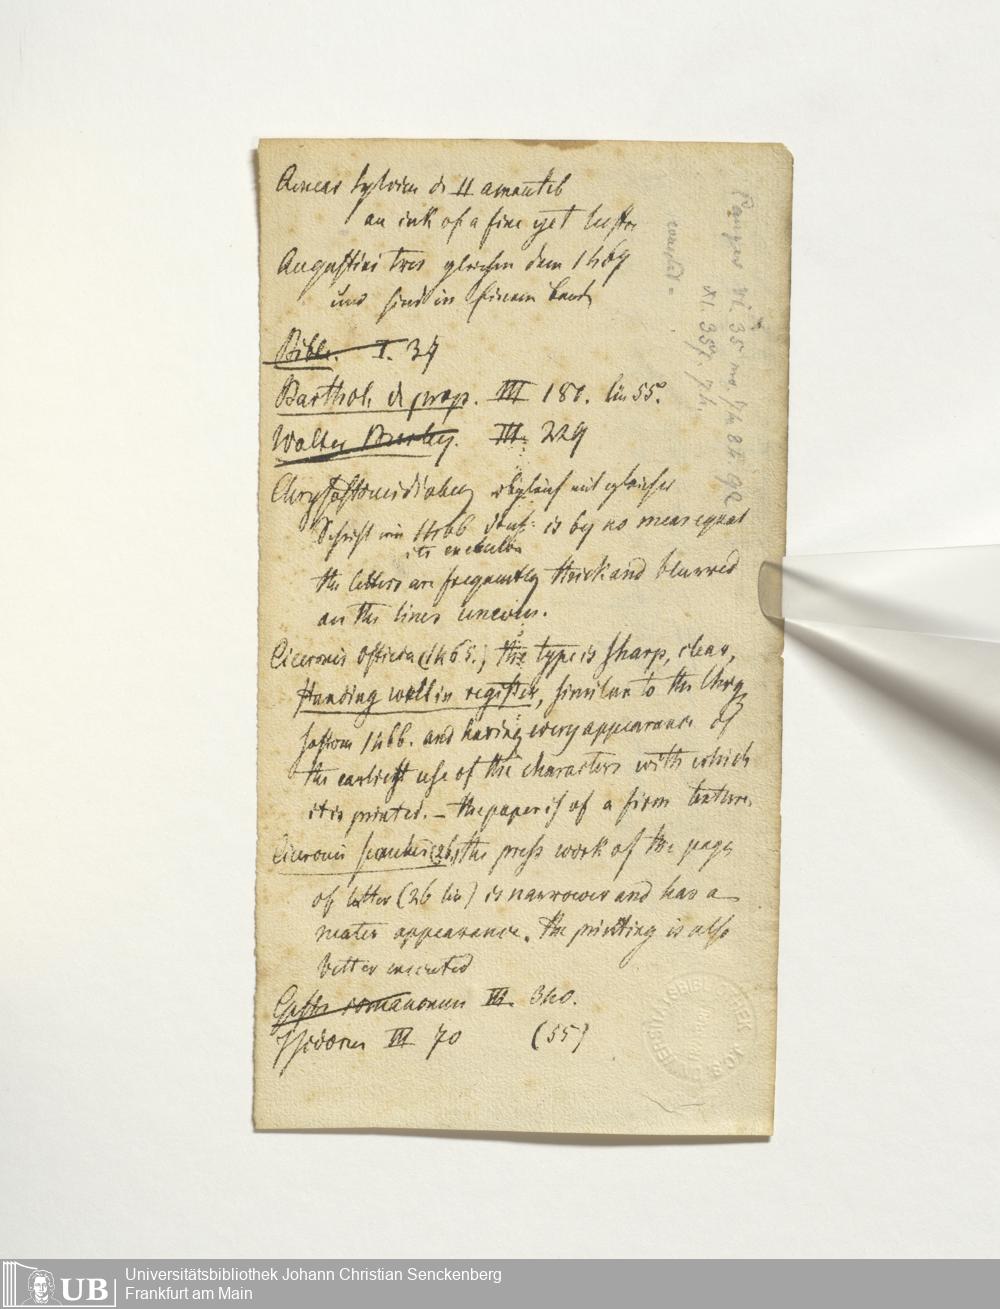 Aeneas Sylvius de II amantib
an ink of a fine jet lustre
Augustini tres gleichen dem 1469
und sind in einem Band
Bibl. I. 34
Barthol. de prop. III 180. lin 55.
Walter Burley. III. 229
Chrysostomus dialog obgleich mit gleicher
Schrift wie 1466 is by no means equal
its execution
the letters are frequently thick and blurred
an the lines uneven.
Ciceronis Officia (1465.) the type is sharp, clear,
standing well in register, similar to the Chry
sostom 1466. and having every appearance of
the earliest use of the characters with which
it is printed. – the paper is of a firm texture.
Ciceronis (26) the press work of the page
of letter (26 lin) is narrower and has a
neater appearance. the printing is also
better executed
Gesta romanorum III. 340.
Isidorus III 70 (55)
Panzer VI. 35
XI. 357.
UNIVERSITÄTSBIBLIOTHEK
UB
Universitätsbibliothek Johann Christian Senckenberg
Frankfurt am Main